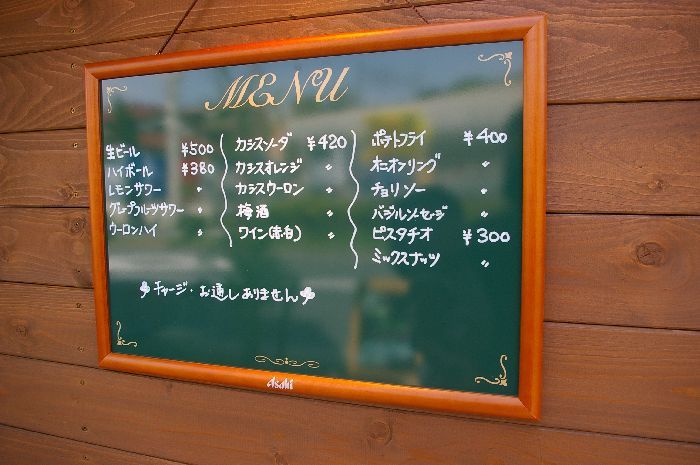 MENU
生ビール ¥500
ハイボール ¥380
レモンサワー 〃
グレープフルーツサワー 〃
ウーロンハイ 〃
カシスソーダ ¥420
カシスオレンジ 〃
カシスウーロン 〃
梅酒 〃
ワイン(赤・白) 〃
ポテトフライ ¥400
オニオンリング 〃
チョリソー 〃
バジルソーセージ 〃
ピスタチオ ¥300
ミックスナッツ 〃
チャージ・お通しありません
Asahi